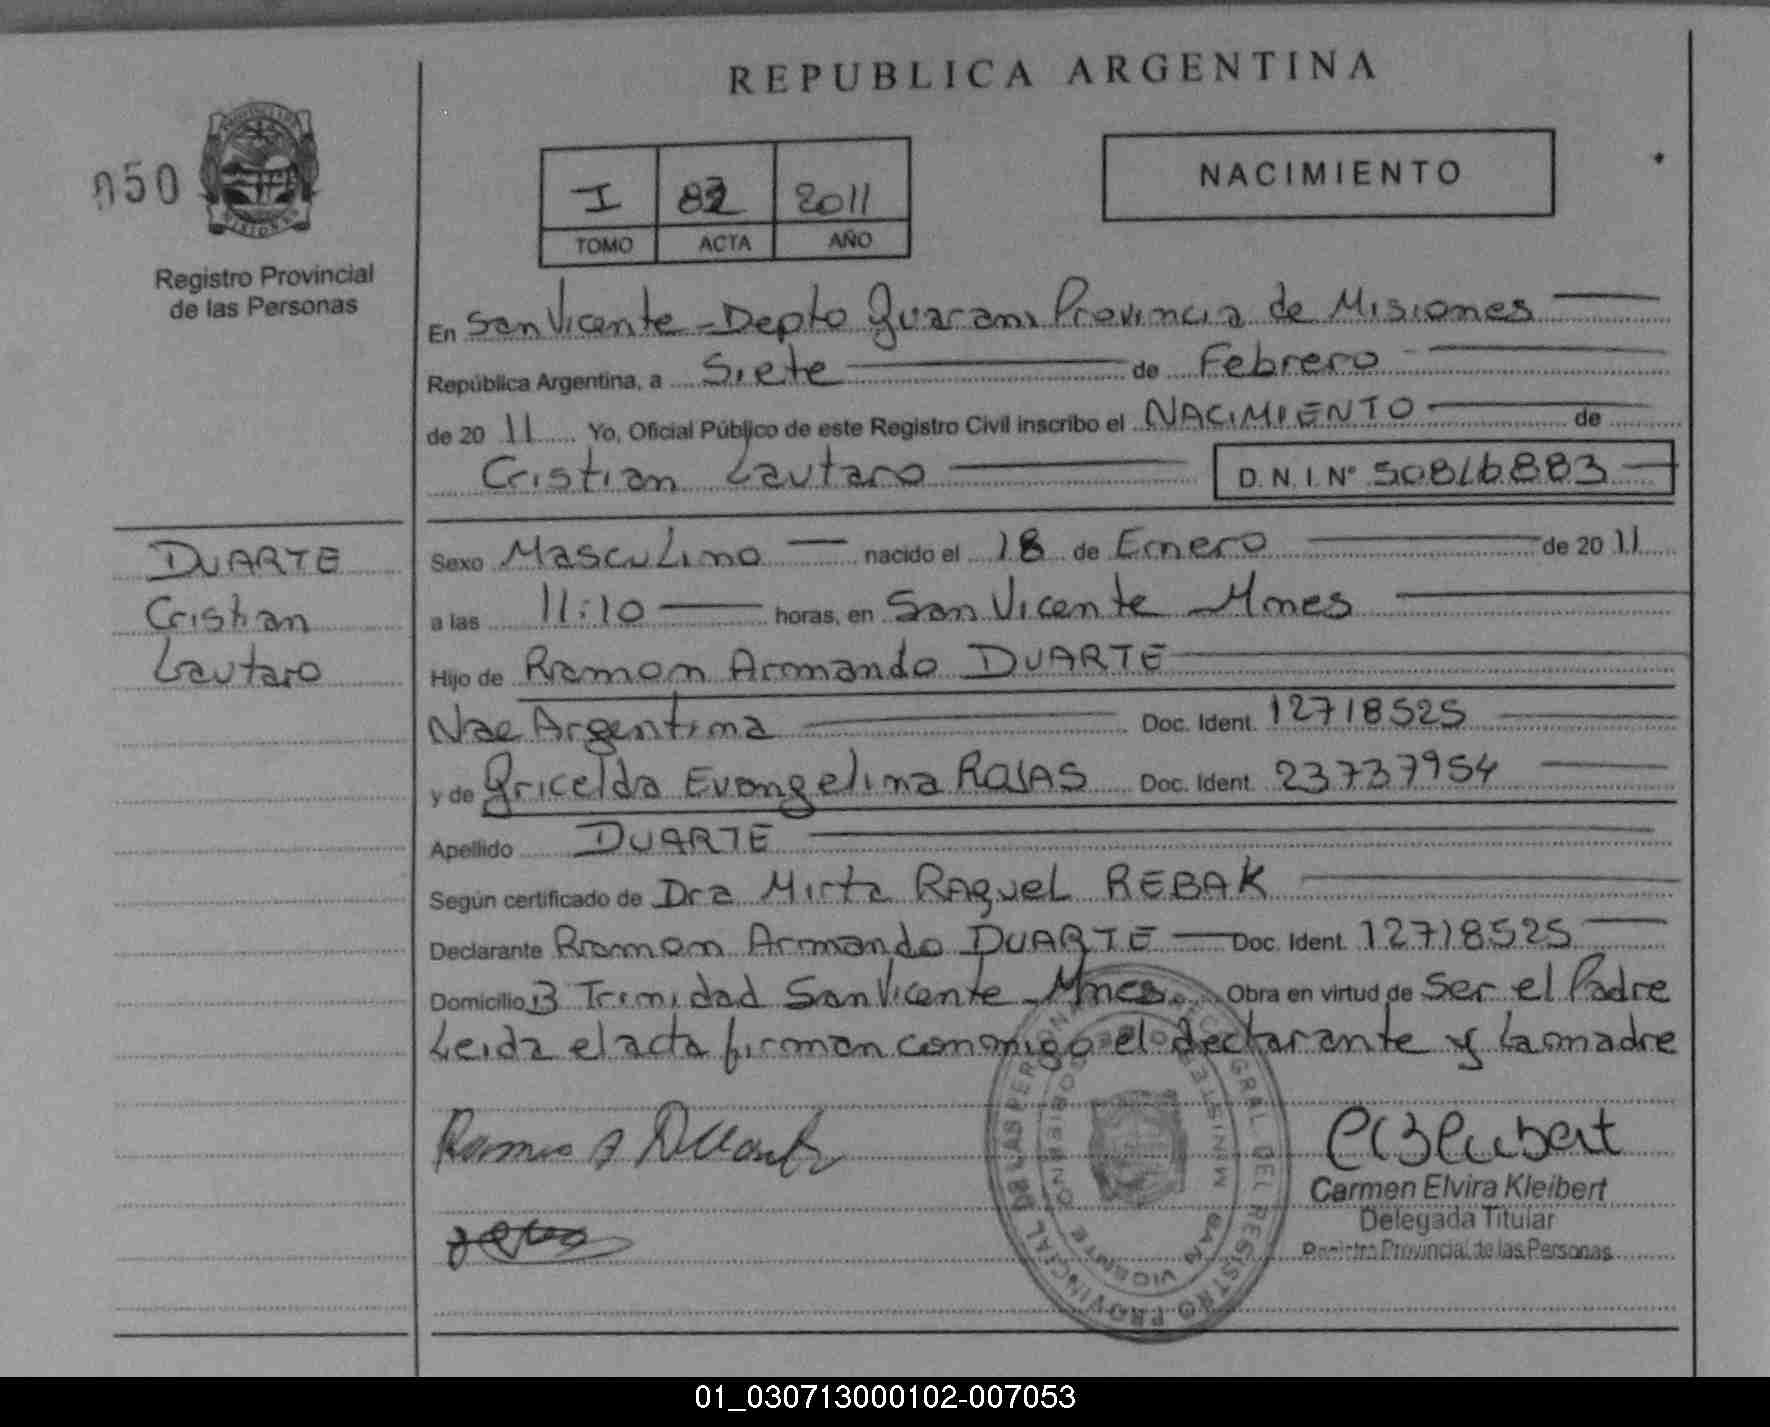 REPUBLICA ARGENTINA
050
I 82 2011
TOMO ACTA AÑO
NACIMIENTO
Registro Provincial
de las Personas
En San Vicente - Depto Guarani Provincia de Misiones
República Argentina, a Siete de Febrero
de 20 11 Yo, Oficial Público de este Registro Civil inscribo el NACIMIENTO de
Cristian Lautaro D.N.I.Nº 50816883
DUARTE
Cristian
Lautaro
Sexo Masculino nacido el 18 de Enero de 20 11
a las 11:10 horas, en San Vicente Mnes
Hijo de Ramon Armando DUARTE
Nac Argentina Doc. Ident. 12718525
y de Gricelda Evangelina ROJAS Doc. Ident. 23737954
Apellido DUARTE
Según certificado de Dra Mirta RAquel REBAK
Declarante Ramon Armando DUARTE Doc. Ident. 12718525
Domicilio B Trinidad San Vicente - Mnes. Obra en virtud de Ser el Padre
Leida el acta firman conmigo el declarante y la madre
Carmen Elvira Kleibert
Delegada Titular
Registro Provincial de las Personas
REGISTRO PROVINCIAL DE LAS PERSONAS
SAN VICENTE
01_030713000102-007053